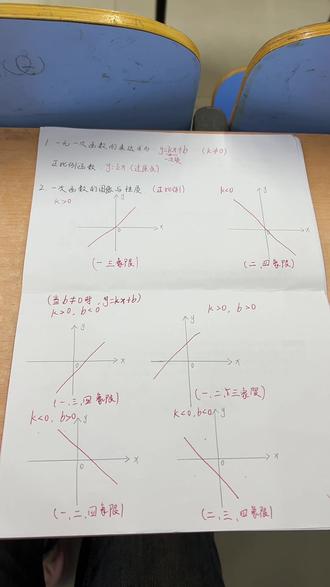 1. 一元一次函数的表达式为 y=kx+b (k≠0)
一次项
正比例函数: y=kx (过原点)
2. 一次函数的图像与性质 (正比例)
k>0 y x 0
k<0 y x 0
(一三象限) (二、四象限)
(当b≠0时, y=kx+b)
k>0, b<0 y x 0
k>0, b>0 y x 0
(一、三、四象限) (一、二、三象限)
k<0, b>0 y x 0
k<0, b<0 y x 0
(一、二、四象限) (二、三、四象限)